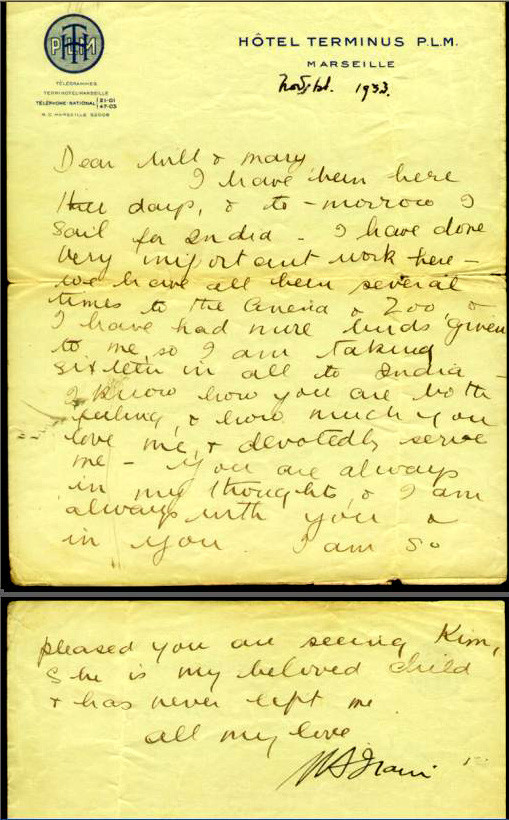 P.L.M
HÔTEL TERMINUS P.L.M.
MARSEILLE
TÉLÉGRAMMES
TERMINOTEL MARSEILLE
TÉLÉPHONE-NATIONAL 21-01
47-05
R.C. MARSEILLE
1933.
Dear Will & Mary
I have been here
days, & to-morrow I
sail for India - I have done
very important work here -
we have all been several
times to the Cinema & Zoo, &
I have had nine birds given
to me, so I am taking
sixteen in all to India -
I know how you are both
feeling, & how much you
love me, & devotedly serve
me - You are always
in my thoughts, & I am
always with you &
in you. I am so
pleased you are seeing Kim,
she is my beloved child
& has never left me
all my love
MSIrani